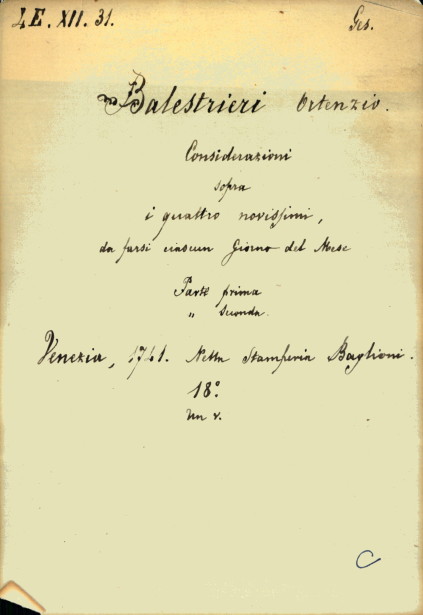 LE. XII. 31. Ges.
Balestrieri Ortenzio.
Considerazioni
sopra
i quattro novissimi,
da farsi ciascun Giorno del Mese
Parte prima
„ seconda.
Venezia, 1741. Nella Stamperia Baglioni.
18°.
Un v.
C